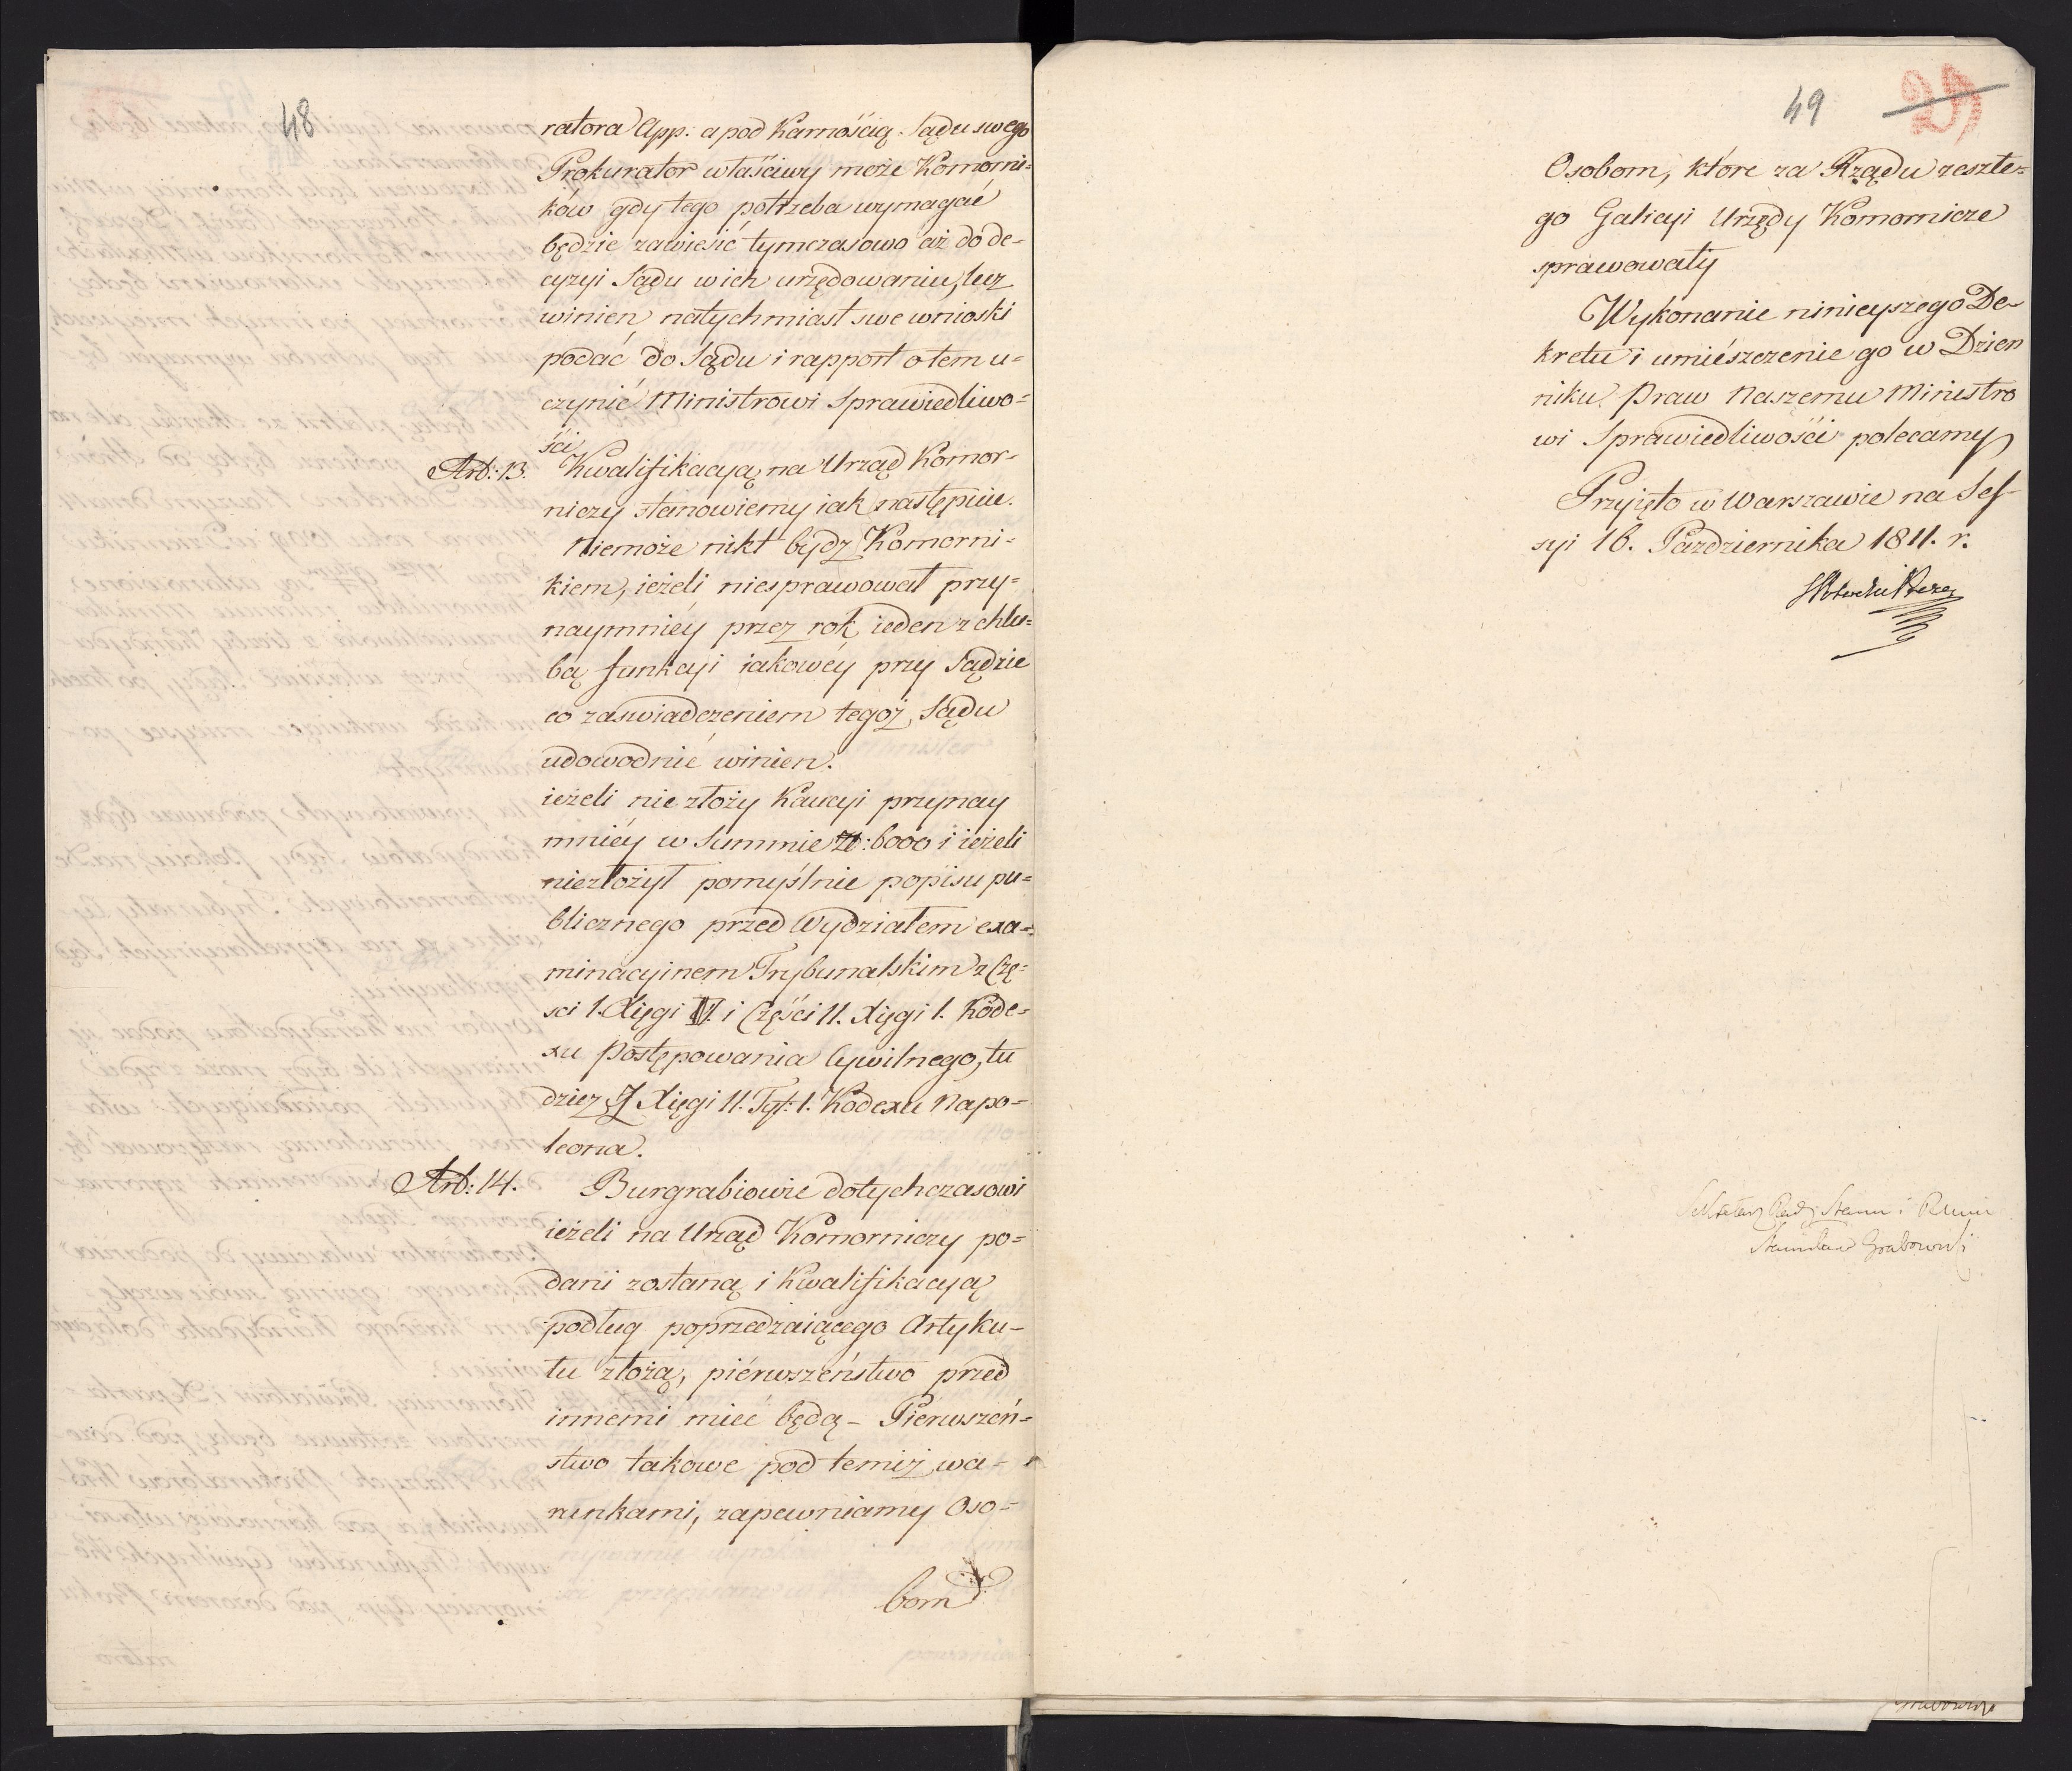 48
ratora App: a pod Karnością Sądu swego
Prokurator właściwy może Komorni=
ków gdy tego potrzeba wymagać
będzie zawiesić tymczasowo aż do de=
cyzyi Sądu w ich urzędowaniu, lecz
winien natychmiast swe wnioski
podać do Sądu i rapport o tem u=
czynić Ministrowi Sprawiedliwo=
ści
Art: 13. Kwalifikacyą na Urząd Komor-
niczy stanowiemy iak następuie.
Niemoże nikt bydz Komorni=
kiem, ieżeli niesprawował przy=
naymniéy przez rok ieden z chlu=
bą funkcyi iakowéy przy Sądzie
co zaswiadczeniem tegoż Sądu
udowodnić winien.
ieżeli nie złoży Kaucyi przynay
mniéy w Summie Zł: 6000 i ieżeli
niezłożył pomyślnie popisu pu=
blicznego przed Wydziałem exa=
minacyinem Trybunalskim z Czę=
sci I. Xięgi IV. i Części II. Xięgi I. Kode=
xu Postępowania Cywilnego, tu
dzież Xięgi II. Tyt: I. Kodexu Napo=
leona.
Art: 14. Burgrabiowie dotychczasowi
ieżeli na Urząd Komorniczy po=
dani zostaną i Kwalifikacyą
podług poprzedzaiącego Artyku-
łu złożą, piérwszeństwo przed
innemi mieć będą – Pierwszeń=
stwo takowe pod temiż wa-
runkami, zapewniamy Oso=
bom
49
Osobom, które za Rządu zeszłe=
go Galicyi Urzędy Komornicze
sprawowały
Wykonanie ninieyszego De-
kretu i umiészczenie go w Dzien
niku Praw Naszemu Ministro
wi Sprawiedliwości polecamy
Przyjęto w Warszawie na Ses-
syi 16. Pazdziernika 1811. r.
Sekretarz Rady Stanu i
Stanisław Grabowski